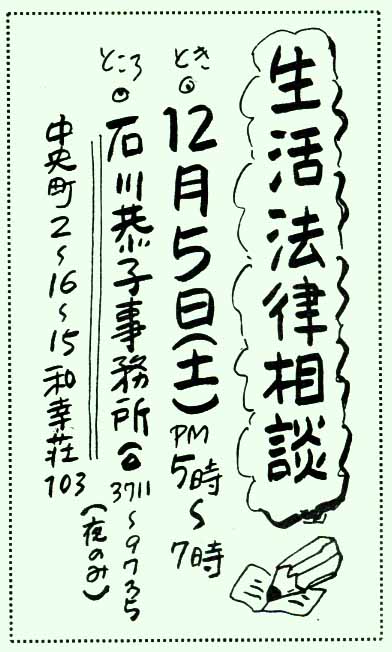 生活法律相談
とき◎
12月5日(土)PM5時~7時
ところ◎
石川恭子事務所(☎3711~9735
中央町2~16~15和幸荘103(夜のみ)